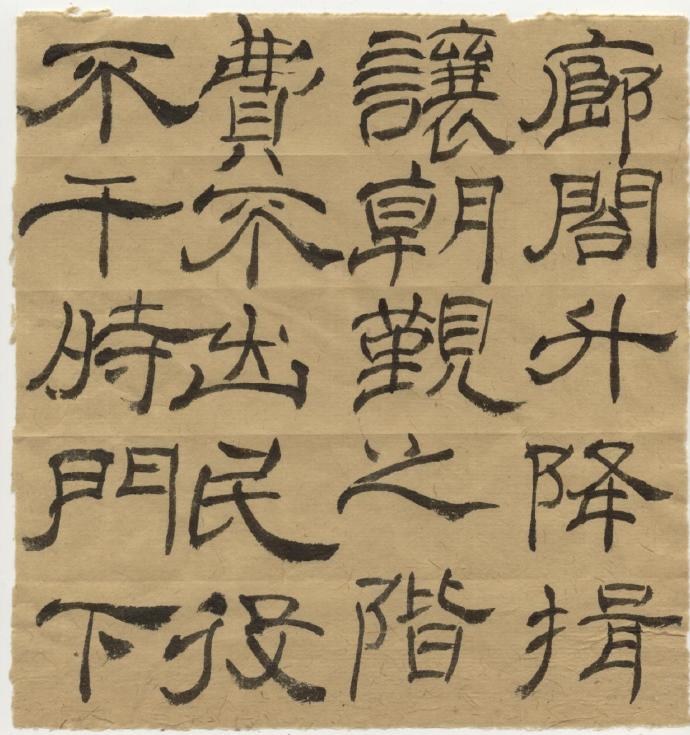 廊閣升降揖
讓朝覲之階
費不出民役
不干時門下